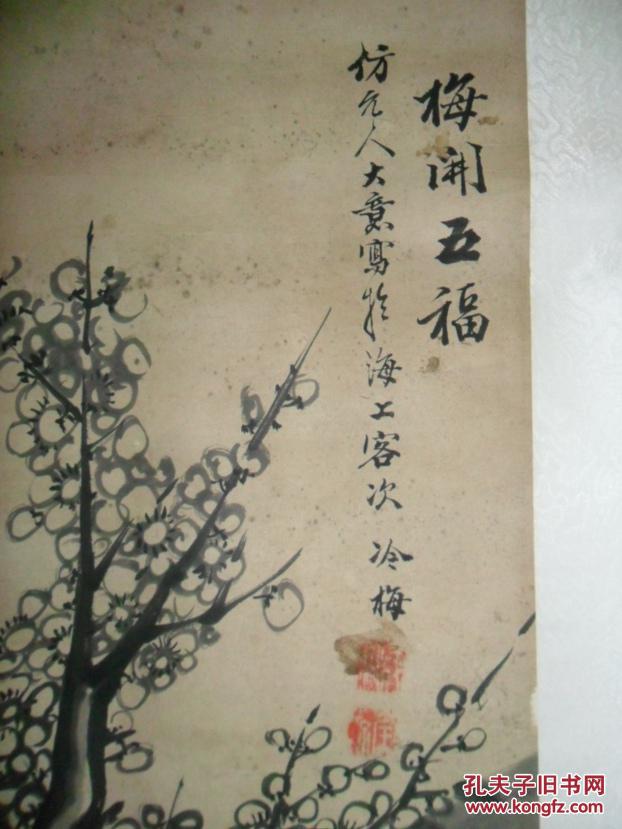 梅開五福
仿元人大意寫於海上客次 冷梅
孔夫子旧书网
www.kongfz.com